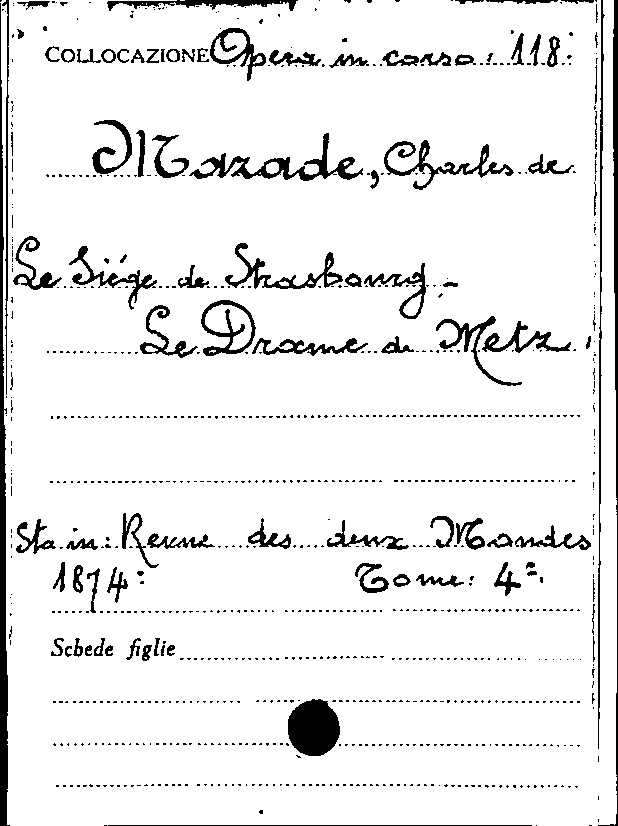 COLLOCAZIONE Opera in corso: 118:
Mazade, Charles de
Le Siége de Strasbourg -
Le Drame de Metz.
Sta in: Revue des deux Mondes
1874: Tome: 4º.
Schede figlie